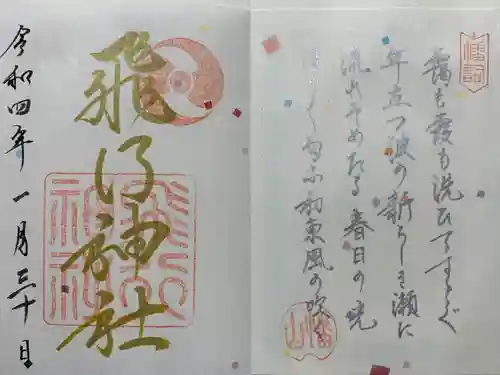 靄も霞も洗ひてすゝぐ
年立つ波の新らしき瀬に
流れそめたる 春日の暁
匂ふ初東風の吹く
飛行神社
飛行神社
令和四年一月三十日